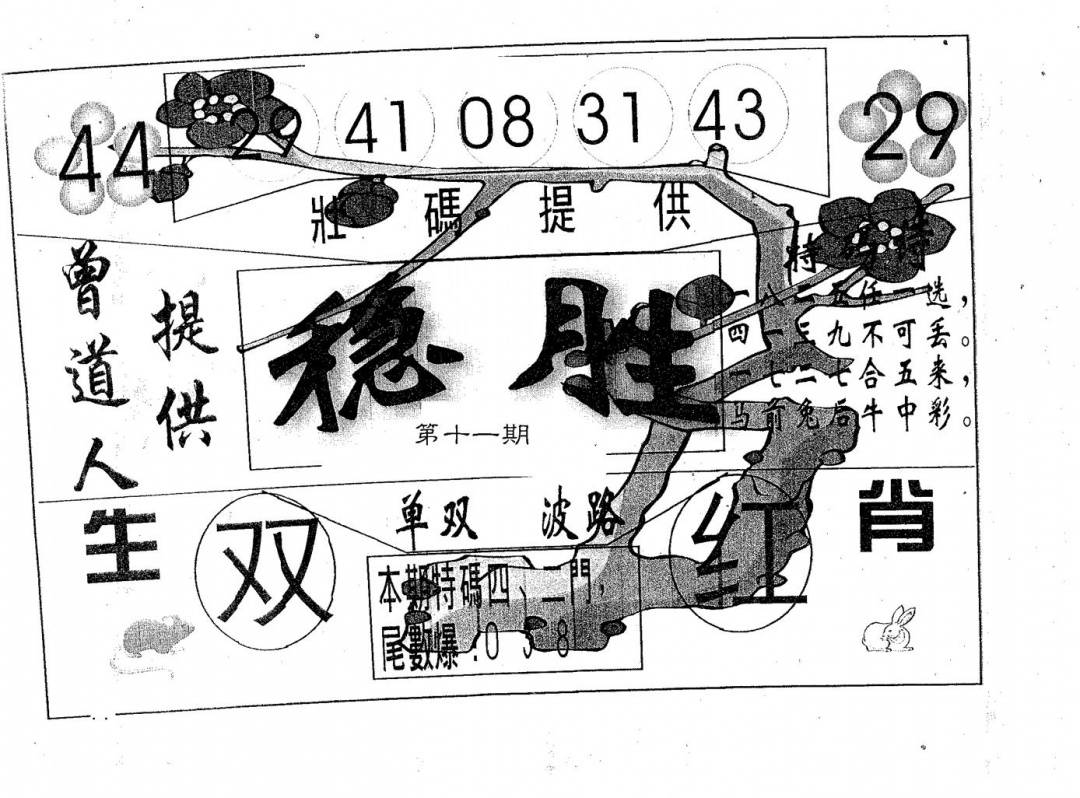 44 29 41 08 31 43 29
壯碼提供
曾道人
提供
稳胜
第十一期
特码诗
一八二五任一选，
四一三九不可丢。
一七二七合五来，
马前兔后牛中彩。
生肖
单双 波路
双 红
本期特碼四、二門，
尾數爆:0 3 8